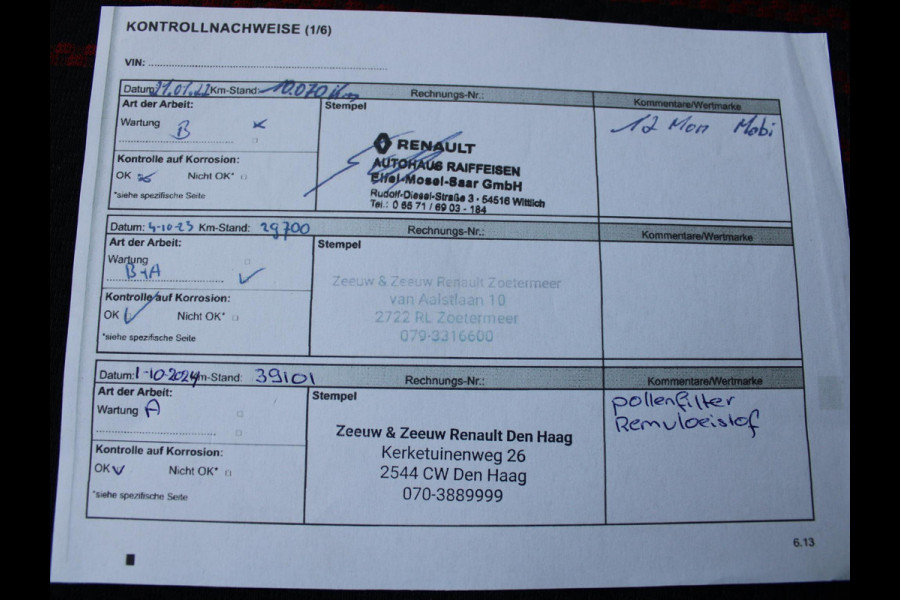 KONTROLLNACHWEISE (1/6)
VIN:
Datum: 21.01.22 Km-Stand: 10.070 Km Rechnungs-Nr.: Kommentare/Wertmarke
Art der Arbeit: Stempel
12 Mon Mobi
Wartung
B
RENAULT
AUTOHAUS RAIFFEISEN
Eifel-Mosel-Saar GmbH
Rudolf-Diesel-Straße 3 · 54516 Wittlich
Tel.: 0 65 71 / 69 03 - 184
Kontrolle auf Korrosion:
OK Nicht OK*
*siehe spezifische Seite
Datum: 4-10-23 Km-Stand: 29700 Rechnungs-Nr.: Kommentare/Wertmarke
Art der Arbeit: Stempel
Wartung
B+A
Zeeuw & Zeeuw Renault Zoetermeer
van Aalstlaan 10
2722 RL Zoetermeer
079-3316600
Kontrolle auf Korrosion:
OK Nicht OK*
*siehe spezifische Seite
Datum: 1-10-2024 Km-Stand: 39101 Rechnungs-Nr.: Kommentare/Wertmarke
Art der Arbeit: Stempel
Wartung A
pollenfilter
Remvloeistof
Zeeuw & Zeeuw Renault Den Haag
Kerketuinenweg 26
2544 CW Den Haag
070-3889999
Kontrolle auf Korrosion:
OK Nicht OK*
*siehe spezifische Seite
6.13